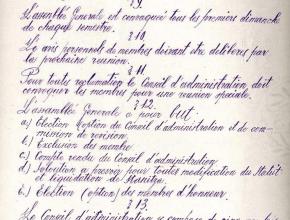 § 9.
L'assemblée Generale est convoquée tous les premiers dimanche
de chaque semestre.
§ 10.
Les avis personnels de membres doivent etre deliberés par
la prochaine reunion.
§ 11.
Pour toutes reclamation le Conseil d'administration doit
convoquer les membres pour une reunion speciale.
§ 12.
L'assemblé Generale a pour but:
a) Election (option du Conseil d'administration et de com-
mission de revision.
b) Exclusion des membre
c) Compte rendu du Conseil d'administration
d) Solution a prevoir pour toutes modification du Statut
et liquidation de
b) Election (option) des membres d'honneur
§ 13.
Le Conseil d'administration se compose de